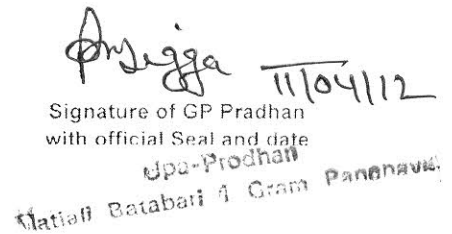 11/04/12
Signature of GP Pradhan
with official Seal and date
Upa-Prodhan
Matiali Batabari 1 Gram Panchayat